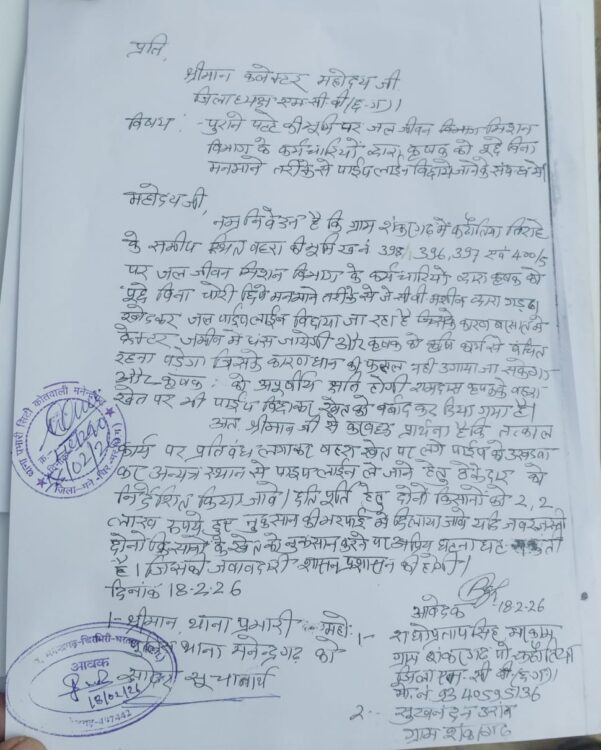 प्रति,
श्रीमान कलेक्टर महोदय जी
जिलाध्यक्ष एम सी बी (छ-ग)।
विषय :- पुराने पट्टे की भूमि पर जल जीवन मिशन
विभाग के कर्मचारियों द्वारा कृषक को पूछे बिना
मनमाने तरीके से पाईप लाईन बिछाये जाने के संबंध में।
महोदय जी,
नम्र निवेदन है कि ग्राम में तिराहे
के समीप स्थित बहरा की भूमि ख नं 395, 396, 397 एवं 400/5
पर जल जीवन मिशन विभाग के कर्मचारियों द्वारा कृषक को
पूछे बिना चोरी छिपे मनमाने तरीके से जे सी बी मशीन द्वारा गड्ढा
खोदकर जल पाईप लाईन बिछाया जा रहा है जिसके कारण
ट्रेक्टर जमीन में धस जायेगी और कृषक को कृषि कार्य से वंचित
रहना पडेगा जिसके कारण धान की फसल नही उगाया जा सकेगा
और कृषक को अपूर्णीय क्षति होगी रामदास कृषक के बहरा
खेत पर भी पाईप बिछाकर खेत को बर्बाद कर दिया गया है।
अतः श्रीमान जी से करबद्ध प्रार्थना है कि तत्काल
कार्य पर प्रतिबंध लगाकर बहरा खेत पर लगे पाईप को उखडवा
कर अन्यत्र स्थान से पाईप लाईन ले जाने हेतु ठेकेदार को
निर्देशित किया जावे। क्षति पूर्ति हेतु दोनो किसानों को 2, 2
लाख रूपये हुए नुकसान की भरपाई को दिलाया जावे यदि जबरजस्ती
दोनो किसानो के खेत को नुकसान करने पर अप्रिय घटना घट सकती
है। जिसकी जवाबदारी शासन प्रशासन की होगी।
दिनांक 18-2-26
18-2-26
आवेदक
1- श्रीमान थाना प्रभारी महो
थाना मनेन्द्रगढ़ को
सादर सूचनार्थ
1- राधे प्रताप सिंह
ग्राम पो
जिला एम सी बी (छ-ग)
मो. नं
2-
ग्राम
थाना प्रभारी सिटी कोतवाली मनेन्द्रगढ़
आवक
18/02/26